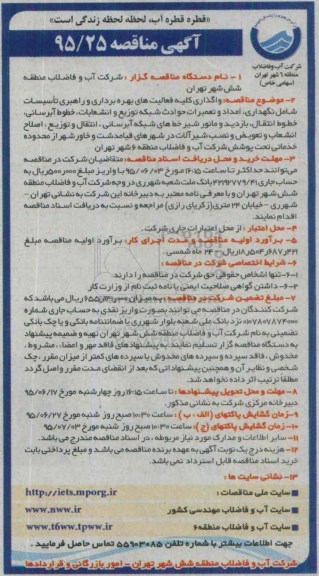 «قطره قطره آب، لحظه لحظه زندگی است»
آگهی مناقصه ۹۵/۲۵
شرکت آب و فاضلاب
منطقه ۶ شهر تهران
(سهامی خاص)
۱- نام دستگاه مناقصه گزار: شرکت آب و فاضلاب منطقه
شش شهر تهران
۲- موضوع مناقصه: واگذاری کلیه فعالیت های بهره برداری و راهبری تأسیسات
شامل نگهداری، امداد و تعمیرات حوادث شبکه توزیع و انشعابات، خطوط آبرسانی،
خطوط انتقال، بازدید و مانور شیر خط های شبکه آبرسانی، انتقال و توزیع، اصلاح
انشعاب و تعویض و نصب شیرآلات در شهرهای قیامدشت و خاور شهر از محدوده
خدماتی تحت پوشش شرکت آب و فاضلاب منطقه ۶ شهر تهران
۳- مهلت خرید و محل دریافت اسناد مناقصه: متقاضیان شرکت در مناقصه
می توانند حداکثر تا ساعت ۱۶:۱۵ مورخ ۹۵/۰۶/۰۳ با واریز مبلغ ریال به
حساب جاری بانک ملت شعبه شهرری در وجه شرکت آب و فاضلاب منطقه
شش شهر تهران و با معرفی نامه معتبر به دبیرخانه این شرکت به نشانی تهران -
شهرری - خیابان ۲۴ متری (زکریای رازی) مراجعه و نسبت به دریافت اسناد مناقصه
اقدام نمایند.
۴- محل اعتبار: از محل اعتبارات جاری شرکت.
۵- برآورد اولیه مناقصه و مدت اجرای کار: برآورد اولیه مناقصه مبلغ
ریال - ۲۴ ماه شمسی
۶- شرایط اختصاصی شرکت در مناقصه:
۶-۱- تنها اشخاص حقوقی حق شرکت در مناقصه را دارند.
۶-۲- داشتن گواهی صلاحیت ایمنی یا نامه ثبت نام از وزارت کار
۷- مبلغ تضمین شرکت در مناقصه: به میزان ریال می باشد که
شرکت کنندگان در مناقصه می توانند بصورت واریز نقدی به حساب جاری شماره
نزد بانک ملی شعبه بلوار شهرری یا ضمانتنامه بانکی و یا چک بانکی
تضمینی به نام شرکت آب و فاضلاب منطقه شش شهر تهران تهیه و ضمیمه پیشنهاد
به دستگاه مناقصه گزار تسلیم نمایند. به پیشنهادهای فاقد مهر و امضاء، مشروط،
مخدوش، فاقد سپرده و سپرده های مخدوش یا سپرده های کمتر از میزان مقرر، چک
شخصی و نظایر آن و همچنین پیشنهاداتی که بعد از انقضای مدت مقرر واصل گردد
مطلقاً ترتیب اثر داده نخواهد شد.
۸- مهلت و محل تحویل پیشنهادها: تا ساعت ۱۶:۱۵ روز چهارشنبه مورخ ۹۵/۰۶/۱۷
دبیرخانه مرکزی شرکت به نشانی مذکور.
۹- زمان گشایش پاکتهای (الف، ب): ساعت ۱۰:۳۰ صبح روز شنبه مورخ ۹۵/۰۶/۲۷
۱۰- زمان گشایش پاکتهای (ج): ساعت ۱۰:۳۰ صبح روز شنبه مورخ ۹۵/۰۷/۰۳
۱۱- سایر اطلاعات و مدارک مورد نیاز مربوطه، در اسناد مناقصه مندرج می باشد.
۱۲- هزینه درج یک نوبت آگهی به عهده برنده مناقصه می باشد و مبلغ پرداختی بابت
خرید اسناد مناقصه قابل استرداد نمی باشد.
۱۳- نشانی سایت ها:
سایت ملی مناقصات: http://iets.mporg.ir
سایت آب و فاضلاب مهندسی کشور www.nww.ir
سایت آب و فاضلاب منطقه ۶ www.t6ww.tpww.ir
جهت اطلاعات بیشتر با شماره تلفن ۵۵۹۰۳۰۸۵ تماس حاصل فرمایید.
شرکت آب و فاضلاب منطقه شش شهر تهران - امور بازرگانی و قراردادها